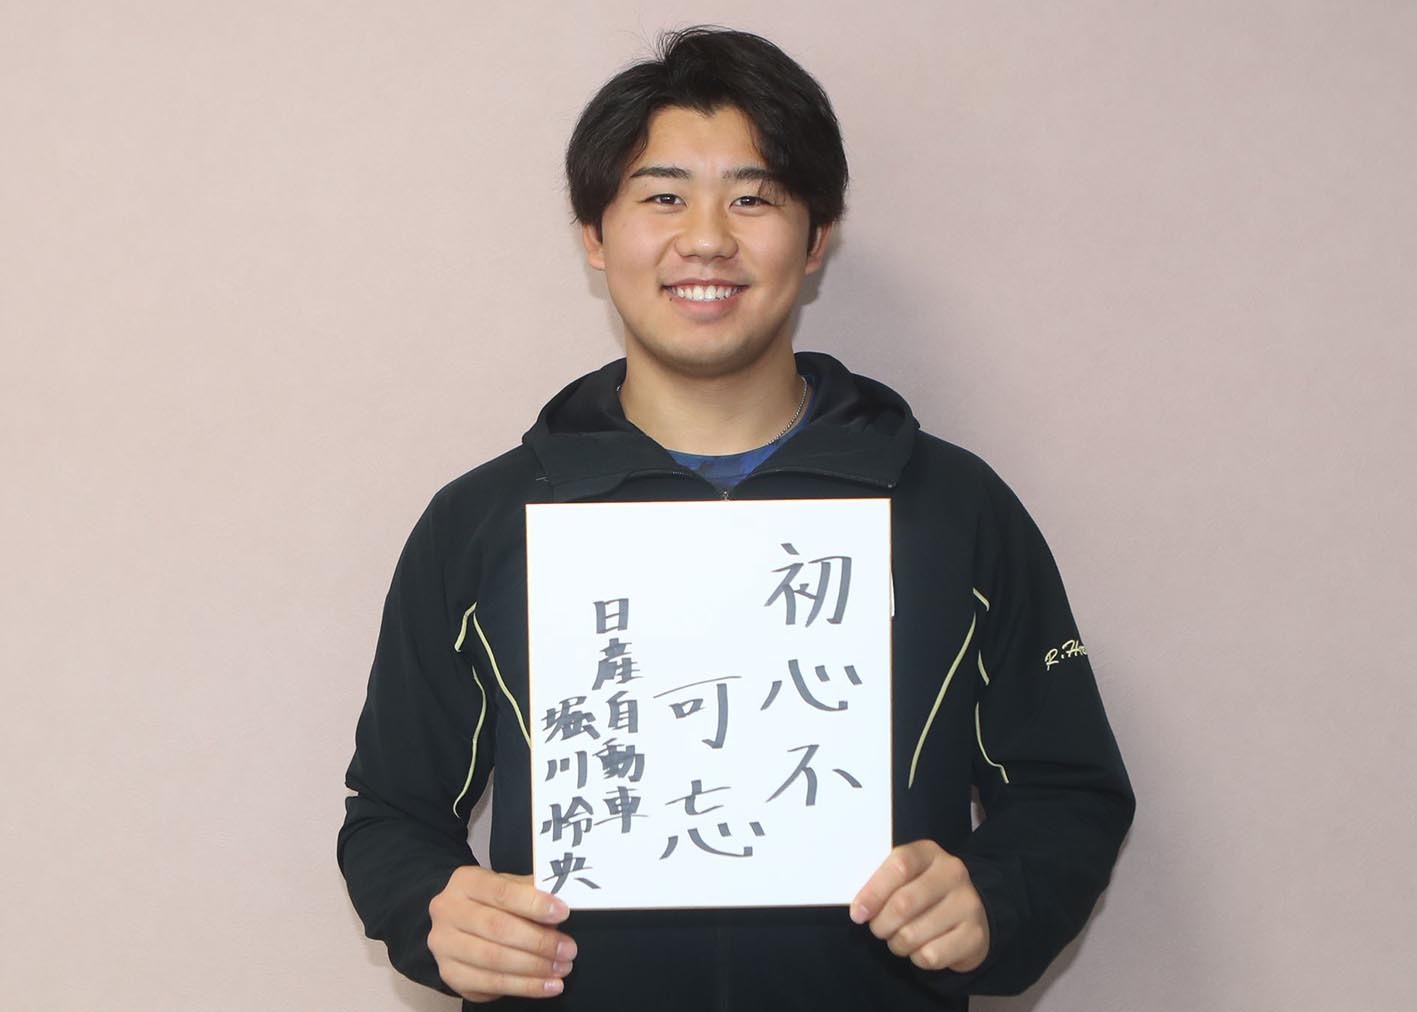 初心不
可忘
日産自動車
堀川怜央
R.Ho